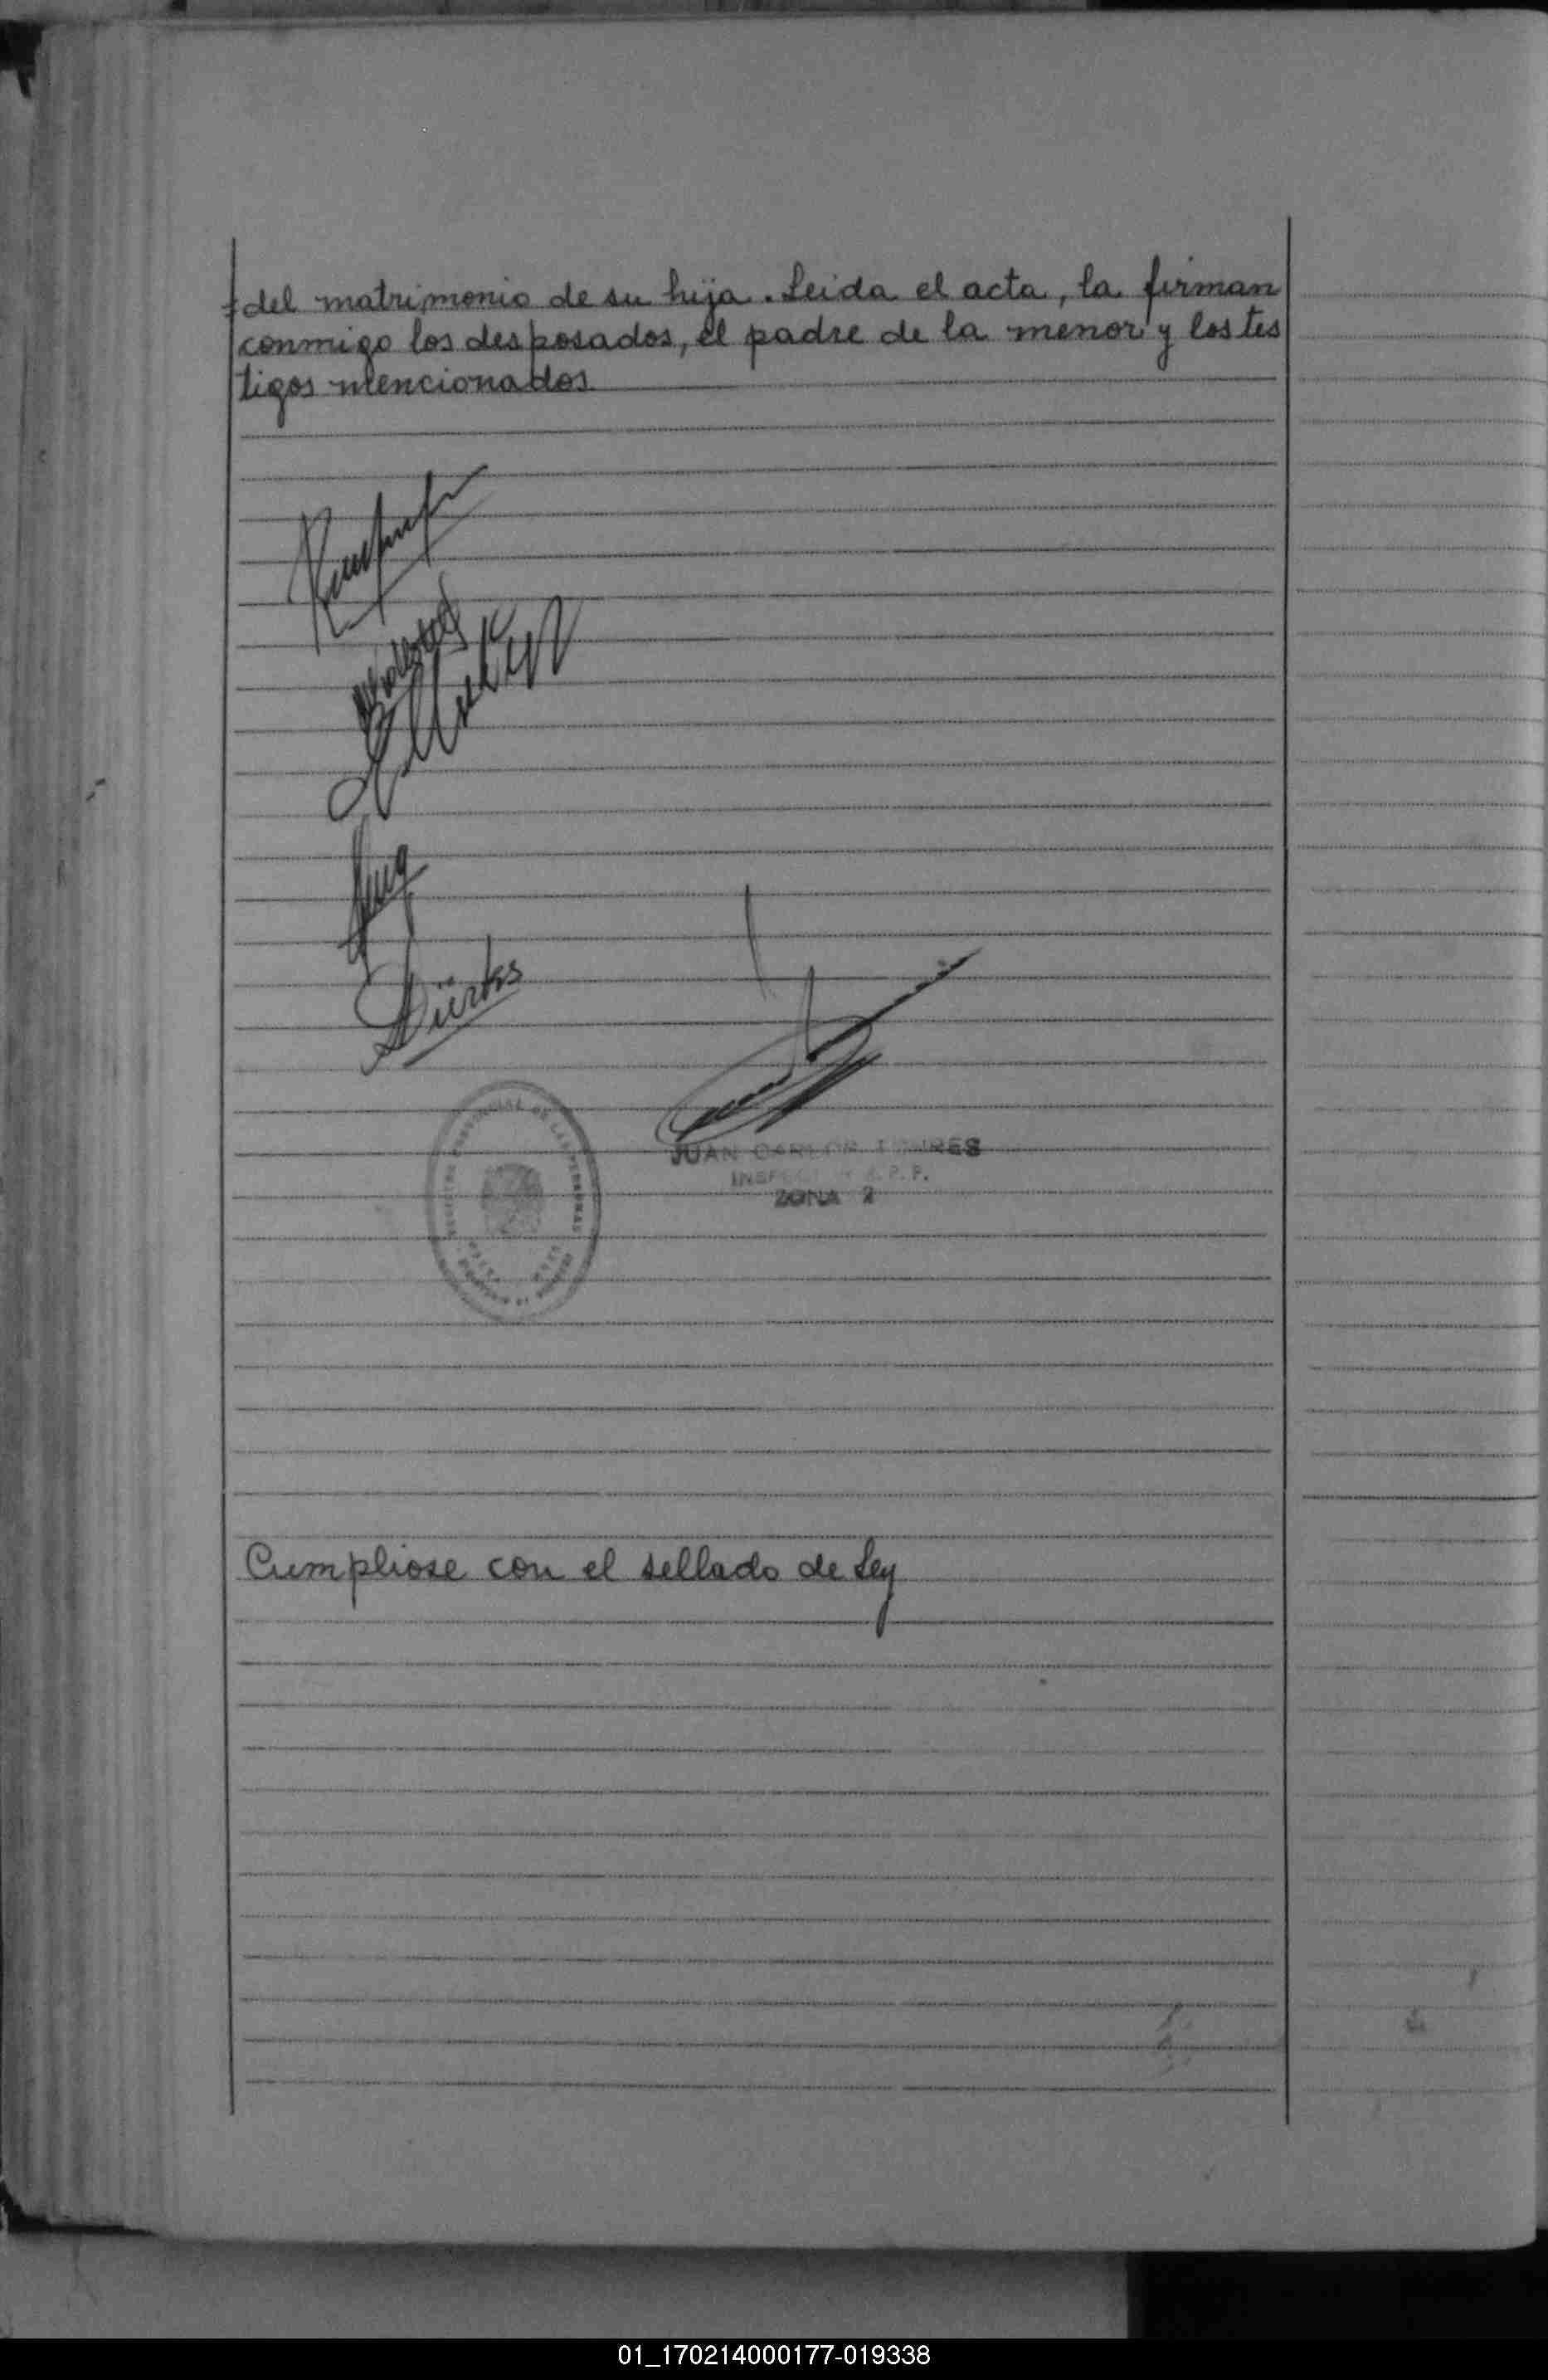 del matrimonio de su hija. Leida el acta, la firman
conmigo los desposados, el padre de la menor y los tes
tigos mencionados
Dürks
JUAN CARLOS TORRES
ZONA 2
Cumpliose con el sellado de Ley
01_170214000177-019338